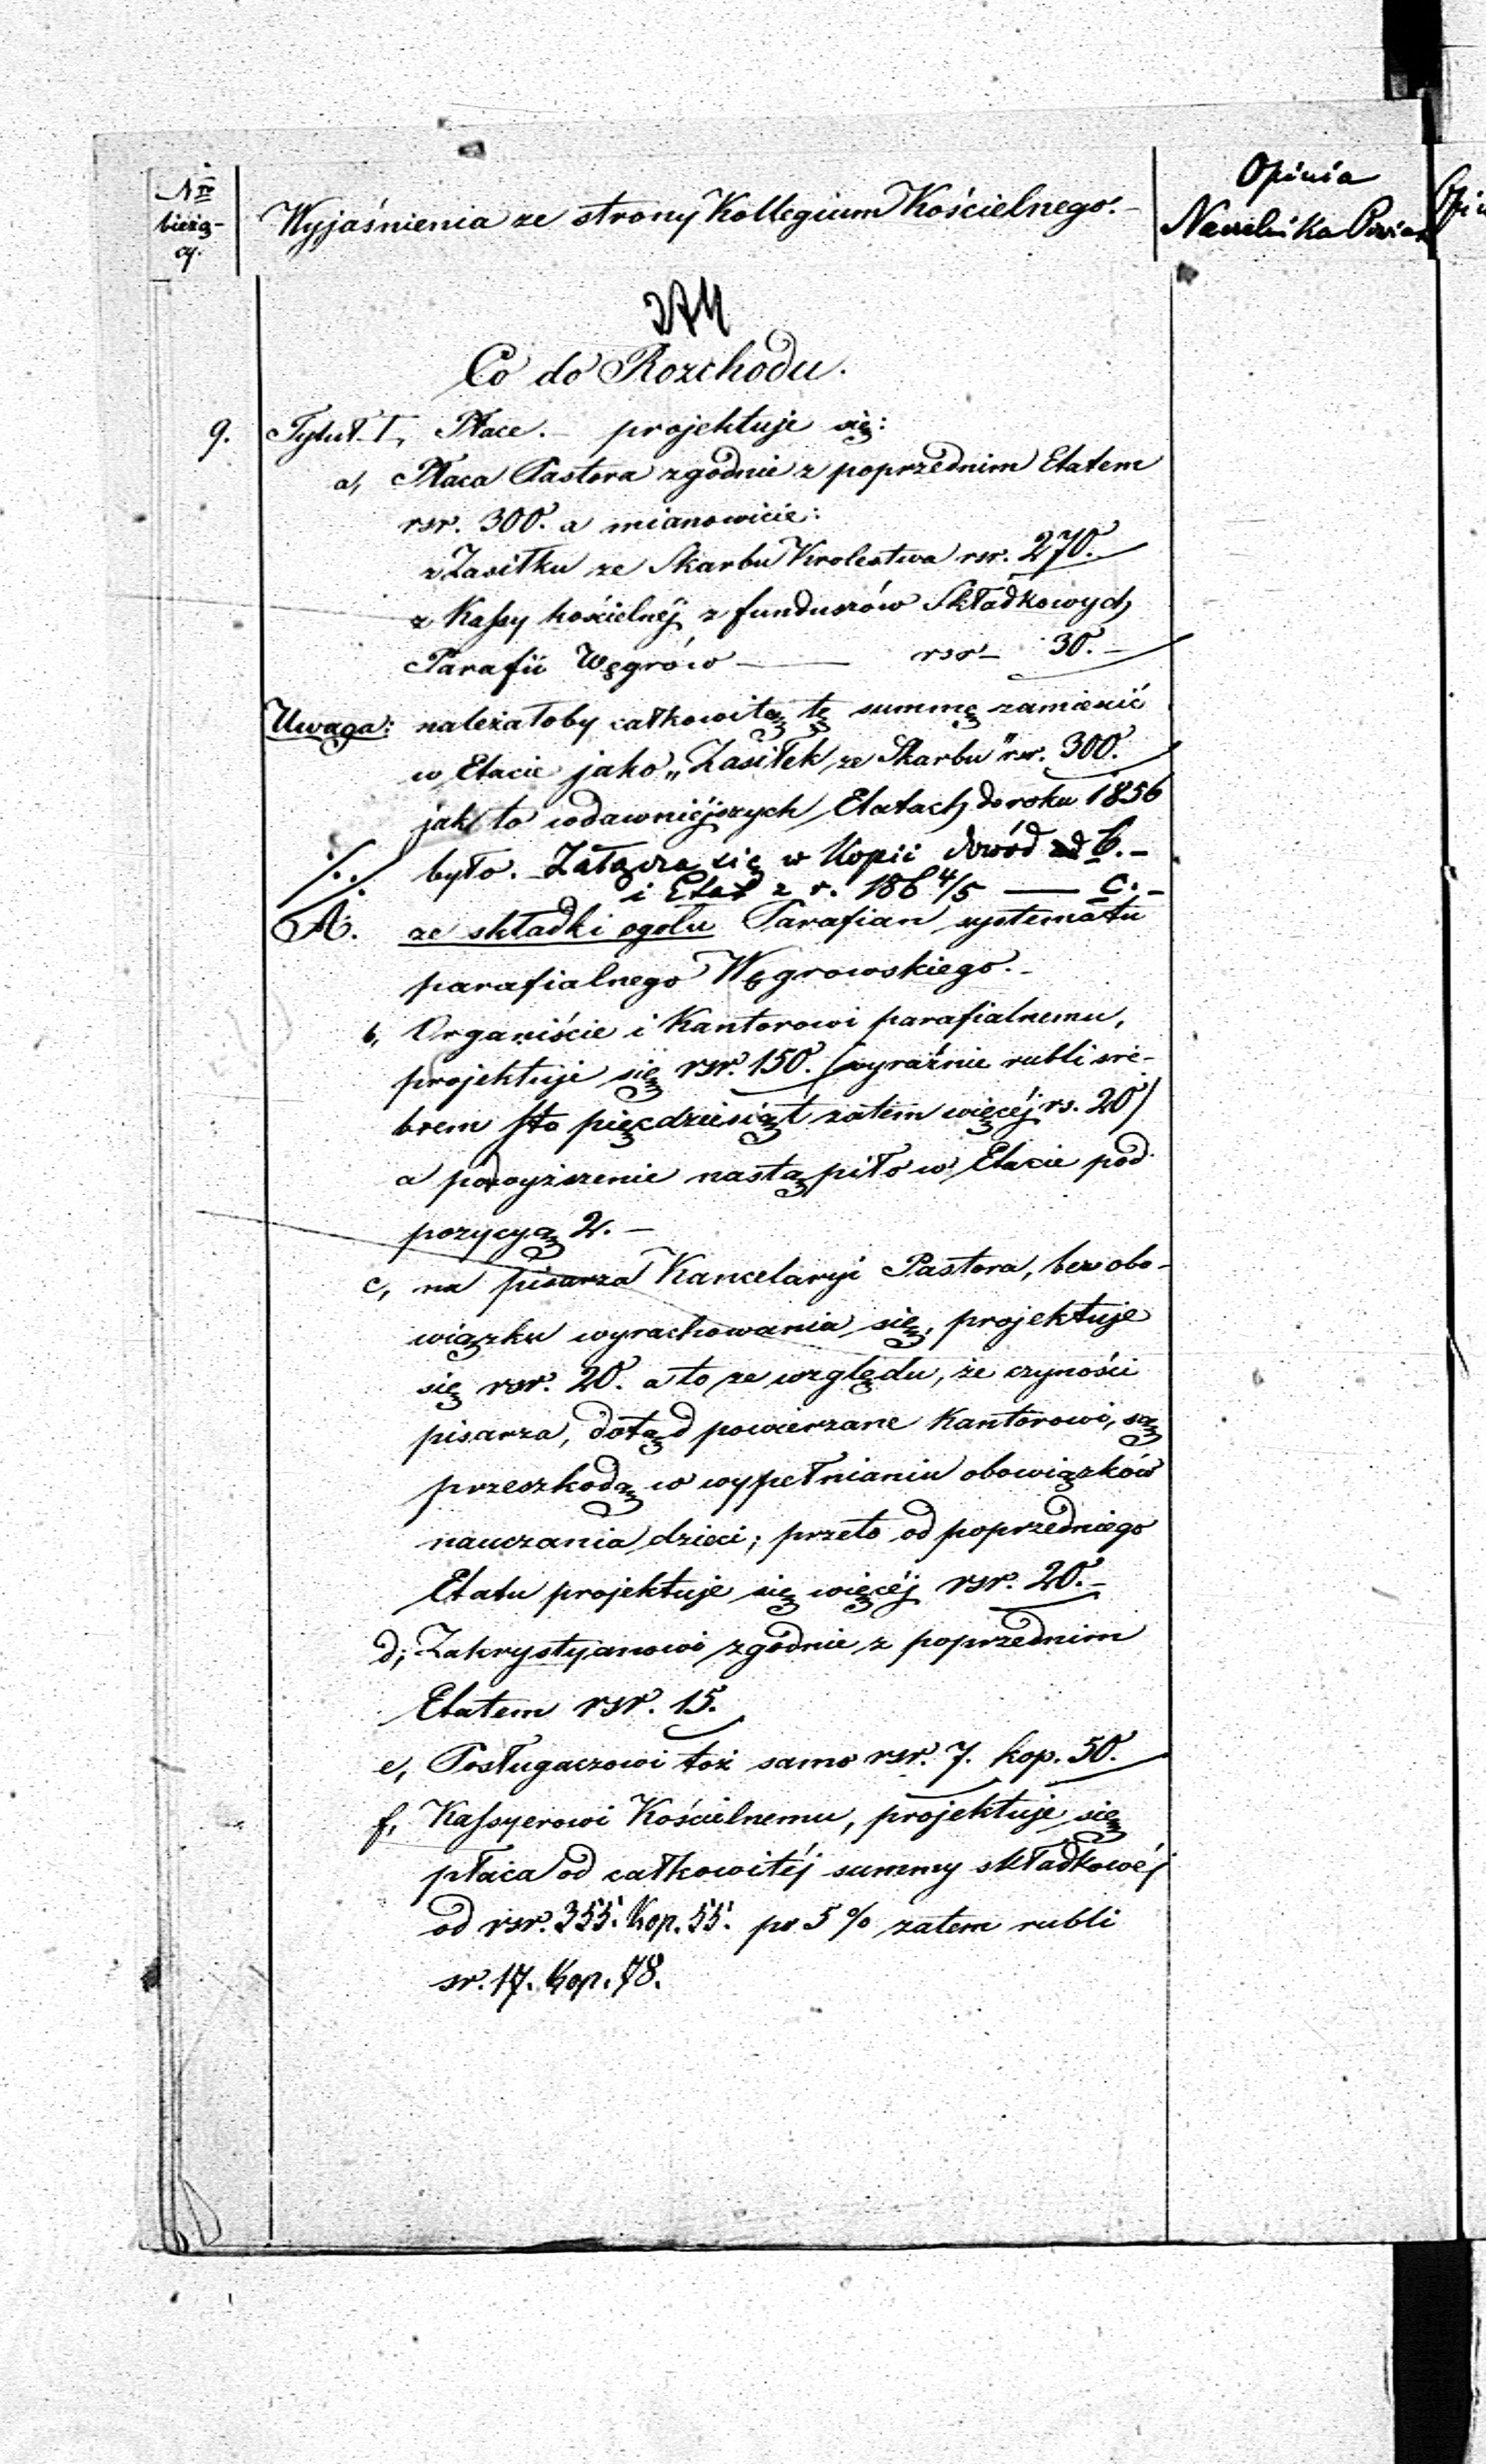 Nro bieżą-cy.
Wyjaśnienia ze strony Kollegium Kościelnego.-
Opinia
Naczelnika Powiat
Opi
Co do Rozchodu.
9. Tytuł I, Płace.- projektuje się:
a, Płaca Pastora zgodnie z poprzednim Etatem
rsr. 300. a mianowicie:
z Zasiłku ze Skarbu Krolestwa rsr. 270.
z Kassy kościelnéj z funduszów Składkowych
Parafii Węgrów — rsr- 30.-
Uwaga: należałoby całkowitą tę summę zamieścić
w Etacie jako „Zasiłek ze Skarbu" rsr. 300.
jak to w dawniéjszych Etatach do roku 1856
·/. było. Załącza się w Kopii dowód ad b.-
i Etat z r. 186 4/5 — c.-
A. ze składki ogołu Parafian systematu
parafialnego Węgrowskiego.-
b, Organiście i Kantorowi parafialnemu,
projektuje się rsr. 150. (wyraźnie rubli sre-
brem sto pięcdziesiąt zatem więcéj rs. 20)
a podwyższenie nastąpiło w Etacie pod
pozycyą 2.-
c, na pisarza Kancelaryi Pastora, bez obo-
wiązku wyrachowania się, projektuje
się rsr. 20. a to ze względu, że czyności
pisarza, dotąd powierzane Kantorowi, są
przeszkodą w wypełnianiu obowiązków
nauczania dzieci; przeto od poprzedniego
Etatu projektuje się więcéj rsr. 20.-
d, Zakrystyanowi zgodnie z poprzednim
Etatem rsr. 15.
e, Posługaczowi toż samo rsr. 7. kop. 50.
f, Kassyerowi Kościelnemu, projektuje się
płaca od całkowitéj summy składkowéj
od rsr. 355. Kop. 55. po 5% zatem rubli
sr. 17. Kop. 78.